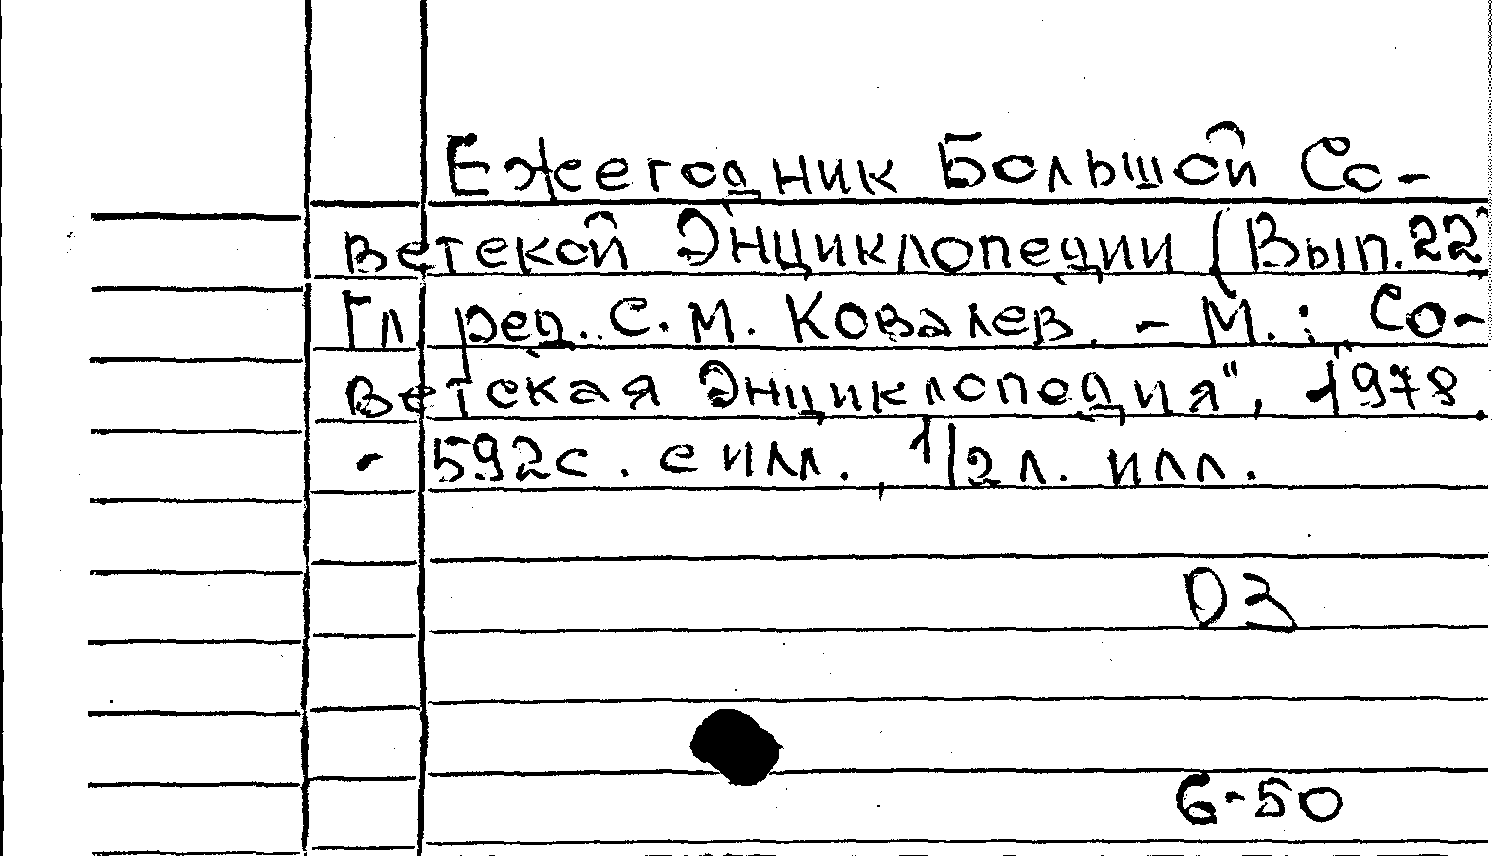 Ежегодник Большой Со-
ветской Энциклопедии (Вып. 22)
Гл ред. С. М. Ковалев. - М.: „Со-
ветская Энциклопедия", 1978.
- 592с. с илл., 1/2 л. илл.
D3
6-50